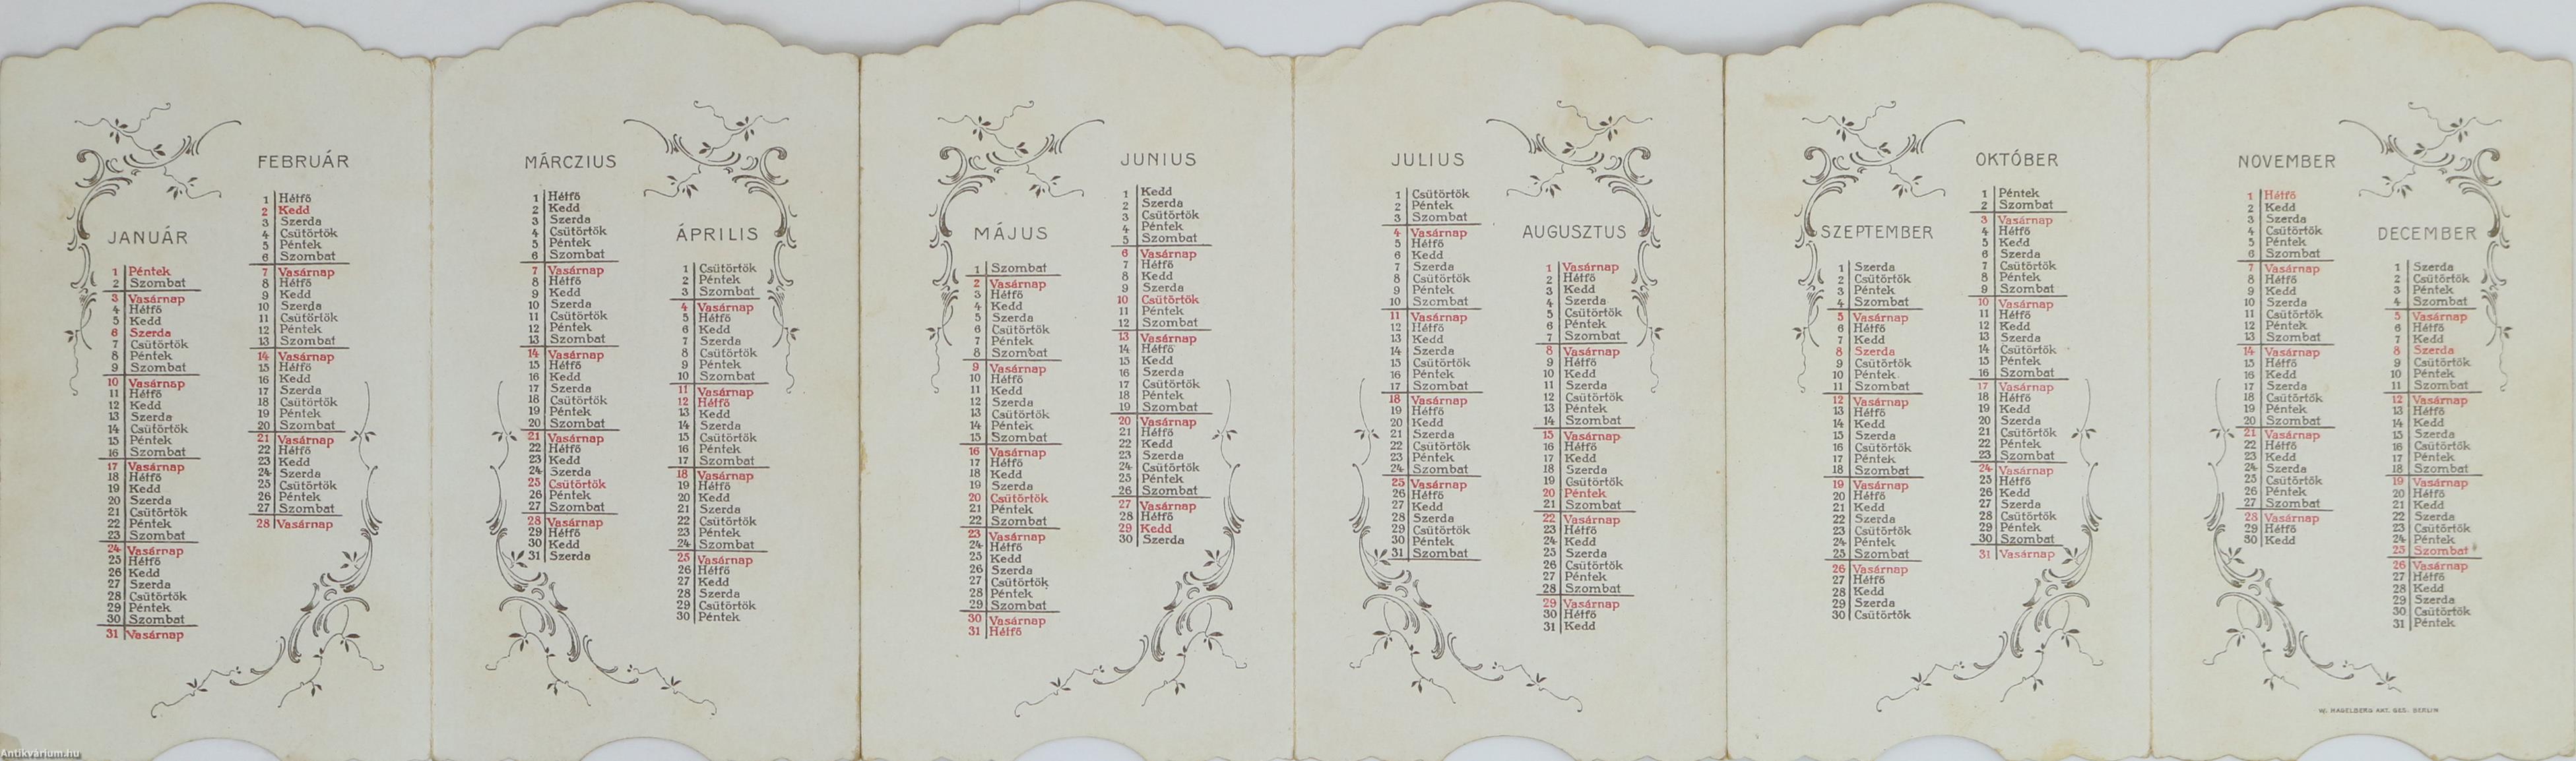 JANUÁR
1 Péntek
2 Szombat
3 Vasárnap
4 Hétfő
5 Kedd
6 Szerda
7 Csütörtök
8 Péntek
9 Szombat
10 Vasárnap
11 Hétfő
12 Kedd
13 Szerda
14 Csütörtök
15 Péntek
16 Szombat
17 Vasárnap
18 Hétfő
19 Kedd
20 Szerda
21 Csütörtök
22 Péntek
23 Szombat
24 Vasárnap
25 Hétfő
26 Kedd
27 Szerda
28 Csütörtök
29 Péntek
30 Szombat
31 Vasárnap
FEBRUÁR
1 Hétfő
2 Kedd
3 Szerda
4 Csütörtök
5 Péntek
6 Szombat
7 Vasárnap
8 Hétfő
9 Kedd
10 Szerda
11 Csütörtök
12 Péntek
13 Szombat
14 Vasárnap
15 Hétfő
16 Kedd
17 Szerda
18 Csütörtök
19 Péntek
20 Szombat
21 Vasárnap
22 Hétfő
23 Kedd
24 Szerda
25 Csütörtök
26 Péntek
27 Szombat
28 Vasárnap
MÁRCZIUS
1 Hétfő
2 Kedd
3 Szerda
4 Csütörtök
5 Péntek
6 Szombat
7 Vasárnap
8 Hétfő
9 Kedd
10 Szerda
11 Csütörtök
12 Péntek
13 Szombat
14 Vasárnap
15 Hétfő
16 Kedd
17 Szerda
18 Csütörtök
19 Péntek
20 Szombat
21 Vasárnap
22 Hétfő
23 Kedd
24 Szerda
25 Csütörtök
26 Péntek
27 Szombat
28 Vasárnap
29 Hétfő
30 Kedd
31 Szerda
ÁPRILIS
1 Csütörtök
2 Péntek
3 Szombat
4 Vasárnap
5 Hétfő
6 Kedd
7 Szerda
8 Csütörtök
9 Péntek
10 Szombat
11 Vasárnap
12 Hétfő
13 Kedd
14 Szerda
15 Csütörtök
16 Péntek
17 Szombat
18 Vasárnap
19 Hétfő
20 Kedd
21 Szerda
22 Csütörtök
23 Péntek
24 Szombat
25 Vasárnap
26 Hétfő
27 Kedd
28 Szerda
29 Csütörtök
30 Péntek
MÁJUS
1 Szombat
2 Vasárnap
3 Hétfő
4 Kedd
5 Szerda
6 Csütörtök
7 Péntek
8 Szombat
9 Vasárnap
10 Hétfő
11 Kedd
12 Szerda
13 Csütörtök
14 Péntek
15 Szombat
16 Vasárnap
17 Hétfő
18 Kedd
19 Szerda
20 Csütörtök
21 Péntek
22 Szombat
23 Vasárnap
24 Hétfő
25 Kedd
26 Szerda
27 Csütörtök
28 Péntek
29 Szombat
30 Vasárnap
31 Hétfő
JUNIUS
1 Kedd
2 Szerda
3 Csütörtök
4 Péntek
5 Szombat
6 Vasárnap
7 Hétfő
8 Kedd
9 Szerda
10 Csütörtök
11 Péntek
12 Szombat
13 Vasárnap
14 Hétfő
15 Kedd
16 Szerda
17 Csütörtök
18 Péntek
19 Szombat
20 Vasárnap
21 Hétfő
22 Kedd
23 Szerda
24 Csütörtök
25 Péntek
26 Szombat
27 Vasárnap
28 Hétfő
29 Kedd
30 Szerda
JULIUS
1 Csütörtök
2 Péntek
3 Szombat
4 Vasárnap
5 Hétfő
6 Kedd
7 Szerda
8 Csütörtök
9 Péntek
10 Szombat
11 Vasárnap
12 Hétfő
13 Kedd
14 Szerda
15 Csütörtök
16 Péntek
17 Szombat
18 Vasárnap
19 Hétfő
20 Kedd
21 Szerda
22 Csütörtök
23 Péntek
24 Szombat
25 Vasárnap
26 Hétfő
27 Kedd
28 Szerda
29 Csütörtök
30 Péntek
31 Szombat
AUGUSZTUS
1 Vasárnap
2 Hétfő
3 Kedd
4 Szerda
5 Csütörtök
6 Péntek
7 Szombat
8 Vasárnap
9 Hétfő
10 Kedd
11 Szerda
12 Csütörtök
13 Péntek
14 Szombat
15 Vasárnap
16 Hétfő
17 Kedd
18 Szerda
19 Csütörtök
20 Péntek
21 Szombat
22 Vasárnap
23 Hétfő
24 Kedd
25 Szerda
26 Csütörtök
27 Péntek
28 Szombat
29 Vasárnap
30 Hétfő
31 Kedd
SZEPTEMBER
1 Szerda
2 Csütörtök
3 Péntek
4 Szombat
5 Vasárnap
6 Hétfő
7 Kedd
8 Szerda
9 Csütörtök
10 Péntek
11 Szombat
12 Vasárnap
13 Hétfő
14 Kedd
15 Szerda
16 Csütörtök
17 Péntek
18 Szombat
19 Vasárnap
20 Hétfő
21 Kedd
22 Szerda
23 Csütörtök
24 Péntek
25 Szombat
26 Vasárnap
27 Hétfő
28 Kedd
29 Szerda
30 Csütörtök
OKTÓBER
1 Péntek
2 Szombat
3 Vasárnap
4 Hétfő
5 Kedd
6 Szerda
7 Csütörtök
8 Péntek
9 Szombat
10 Vasárnap
11 Hétfő
12 Kedd
13 Szerda
14 Csütörtök
15 Péntek
16 Szombat
17 Vasárnap
18 Hétfő
19 Kedd
20 Szerda
21 Csütörtök
22 Péntek
23 Szombat
24 Vasárnap
25 Hétfő
26 Kedd
27 Szerda
28 Csütörtök
29 Péntek
30 Szombat
31 Vasárnap
NOVEMBER
1 Hétfő
2 Kedd
3 Szerda
4 Csütörtök
5 Péntek
6 Szombat
7 Vasárnap
8 Hétfő
9 Kedd
10 Szerda
11 Csütörtök
12 Péntek
13 Szombat
14 Vasárnap
15 Hétfő
16 Kedd
17 Szerda
18 Csütörtök
19 Péntek
20 Szombat
21 Vasárnap
22 Hétfő
23 Kedd
24 Szerda
25 Csütörtök
26 Péntek
27 Szombat
28 Vasárnap
29 Hétfő
30 Kedd
DECEMBER
1 Szerda
2 Csütörtök
3 Péntek
4 Szombat
5 Vasárnap
6 Hétfő
7 Kedd
8 Szerda
9 Csütörtök
10 Péntek
11 Szombat
12 Vasárnap
13 Hétfő
14 Kedd
15 Szerda
16 Csütörtök
17 Péntek
18 Szombat
19 Vasárnap
20 Hétfő
21 Kedd
22 Szerda
23 Csütörtök
24 Péntek
25 Szombat
26 Vasárnap
27 Hétfő
28 Kedd
29 Szerda
30 Csütörtök
31 Péntek
W. HAGELBERG AKT. GES. BERLIN
Antikvárium.hu